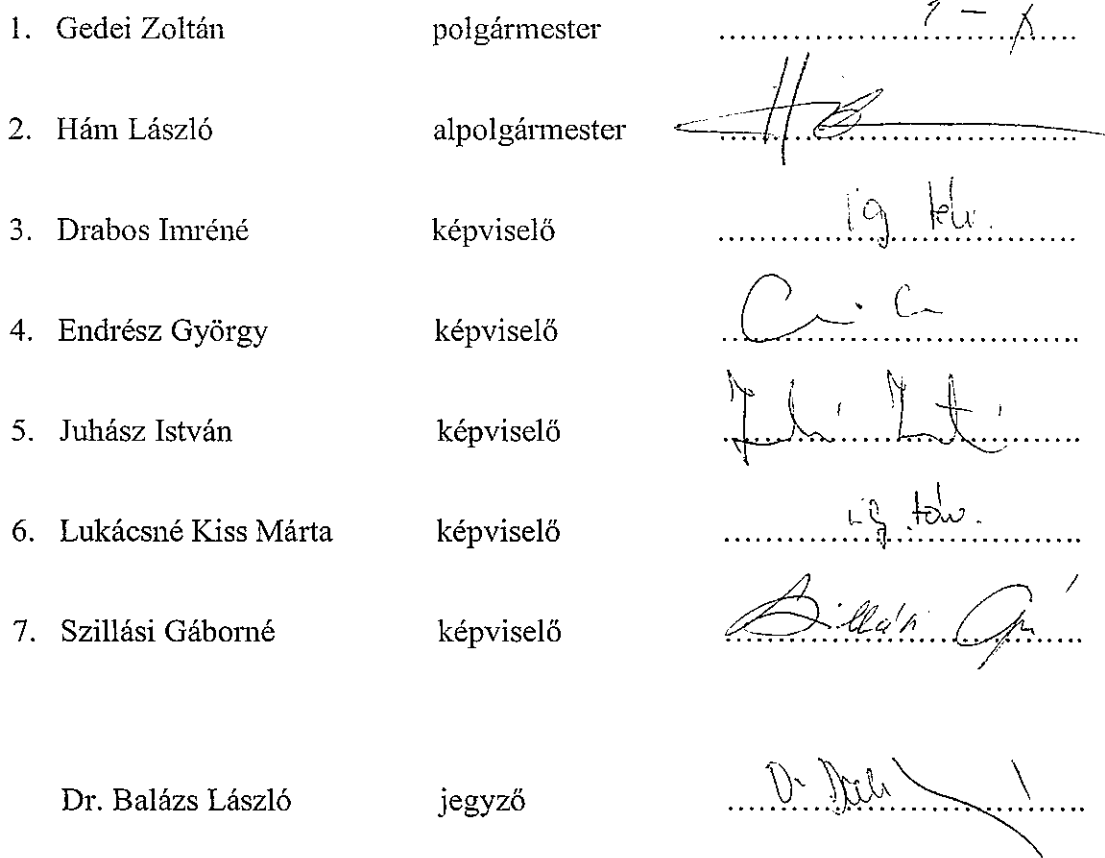 1. Gedei Zoltán polgármester
2. Hám László alpolgármester
3. Drabos Imréné képviselő ig
4. Endrész György képviselő
5. Juhász István képviselő
6. Lukácsné Kiss Márta képviselő ig. táv.
7. Szillási Gáborné képviselő Szillási
Dr. Balázs László jegyző Dr